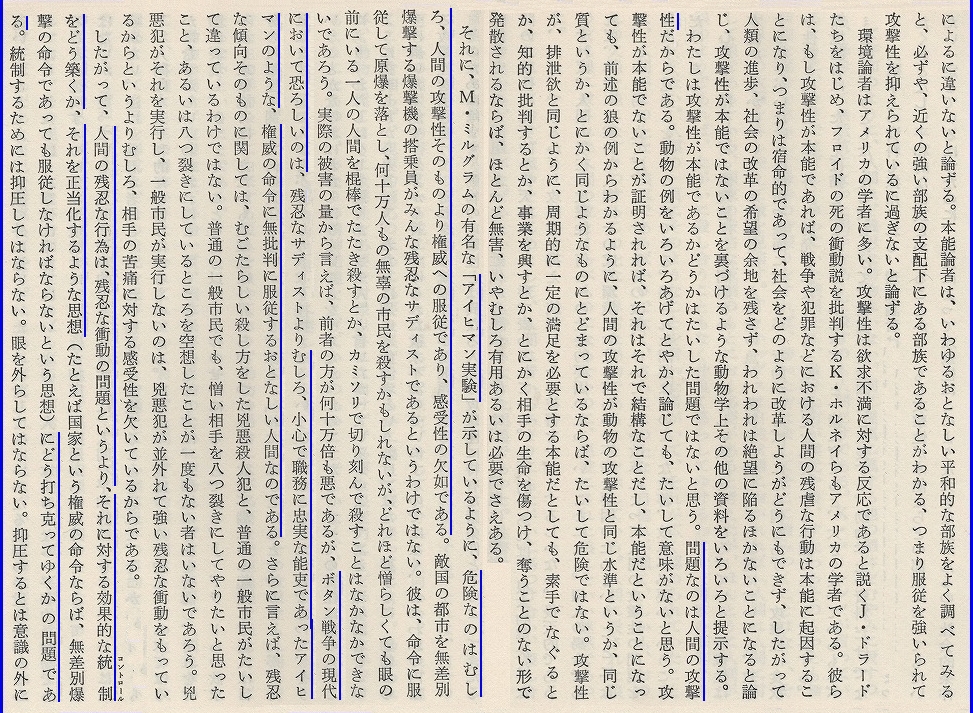 によるに違いないと論ずる。本能論者は、いわゆるおとなしい平和的な部族をよく調べてみる
と、必ずや、近くの強い部族の支配下にある部族であることがわかる、つまり服従を強いられて
攻撃性を抑えられているに過ぎないと論ずる。
環境論者はアメリカの学者に多い。攻撃性は欲求不満に対する反応であると説くJ・ドラード
たちをはじめ、フロイドの死の衝動説を批判するK・ホルネイらもアメリカの学者である。彼ら
は、もし攻撃性が本能であれば、戦争や犯罪などにおける人間の残虐な行動は本能に起因するこ
とになり、つまりは宿命的であって、社会をどのように改革しようがどうにもできず、したがって
人類の進歩、社会の改革の希望の余地を残さず、われわれは絶望に陥るほかないことになると論
じ、攻撃性が本能ではないことを裏づけるような動物学上その他の資料をいろいろと提示する。
わたしは攻撃性が本能であるかどうかはたいした問題ではないと思う。問題なのは人間の攻撃
性だからである。動物の例をいろいろあげてとやかく論じても、たいして意味がないと思う。攻
撃性が本能でないことが証明されれば、それはそれで結構なことだし、本能だということになっ
ても、前述の狼の例からわかるように、人間の攻撃性が動物の攻撃性と同じ水準というか、同じ
質というか、とにかく同じようなものにとどまっているならば、たいして危険ではない。攻撃性
が、排泄欲と同じように、周期的に一定の満足を必要とする本能だとしても、素手でなぐると
か、知的に批判するとか、事業を興すとか、とにかく相手の生命を傷つけ、奪うことのない形で
発散されるならば、ほとんど無害、いやむしろ有用あるいは必要でさえある。
それに、M・ミルグラムの有名な「アイヒマン実験」が示しているように、危険なのはむし
ろ、人間の攻撃性そのものより権威への服従であり、感受性の欠如である。敵国の都市を無差別
爆撃する爆撃機の搭乗員がみんな残忍なサディストであるというわけではない。彼は、命令に服
従して原爆を落とし、何十万人もの無辜の市民を殺すかもしれないが、どれほど憎らしくても眼の
前にいる一人の人間を棍棒でたたき殺すとか、カミソリで切り刻んで殺すことはなかなかできな
いであろう。実際の被害の量から言えば、前者の方が何十万倍も悪であるが、ボタン戦争の現代
において恐ろしいのは、残忍なサディストよりむしろ、小心で職務に忠実な能吏であったアイヒ
マンのような、権威の命令に無批判に服従するおとなしい人間なのである。さらに言えば、残忍
な傾向そのものに関しては、むごたらしい殺し方をした兇悪殺人犯と、普通の一般市民がたいし
て違っているわけではない。普通の一般市民でも、憎い相手を八つ裂きにしてやりたいと思った
こと、あるいは八つ裂きにしているところを空想したことが一度もない者はいないであろう。兇
悪犯がそれを実行し、一般市民が実行しないのは、兇悪犯が並外れて強い残忍な衝動をもってい
るからというよりむしろ、相手の苦痛に対する感受性を欠いているからである。
したがって、人間の残忍な行為は、残忍な衝動の問題というより、それに対する効果的な統制コントロール
をどう築くか、それを正当化するような思想（たとえば国家という権威の命令ならば、無差別爆
撃の命令であっても服従しなければならないという思想）にどう打ち克ってゆくかの問題であ
る。統制するためには抑圧してはならない。眼を外らしてはならない。抑圧するとは意識の外に